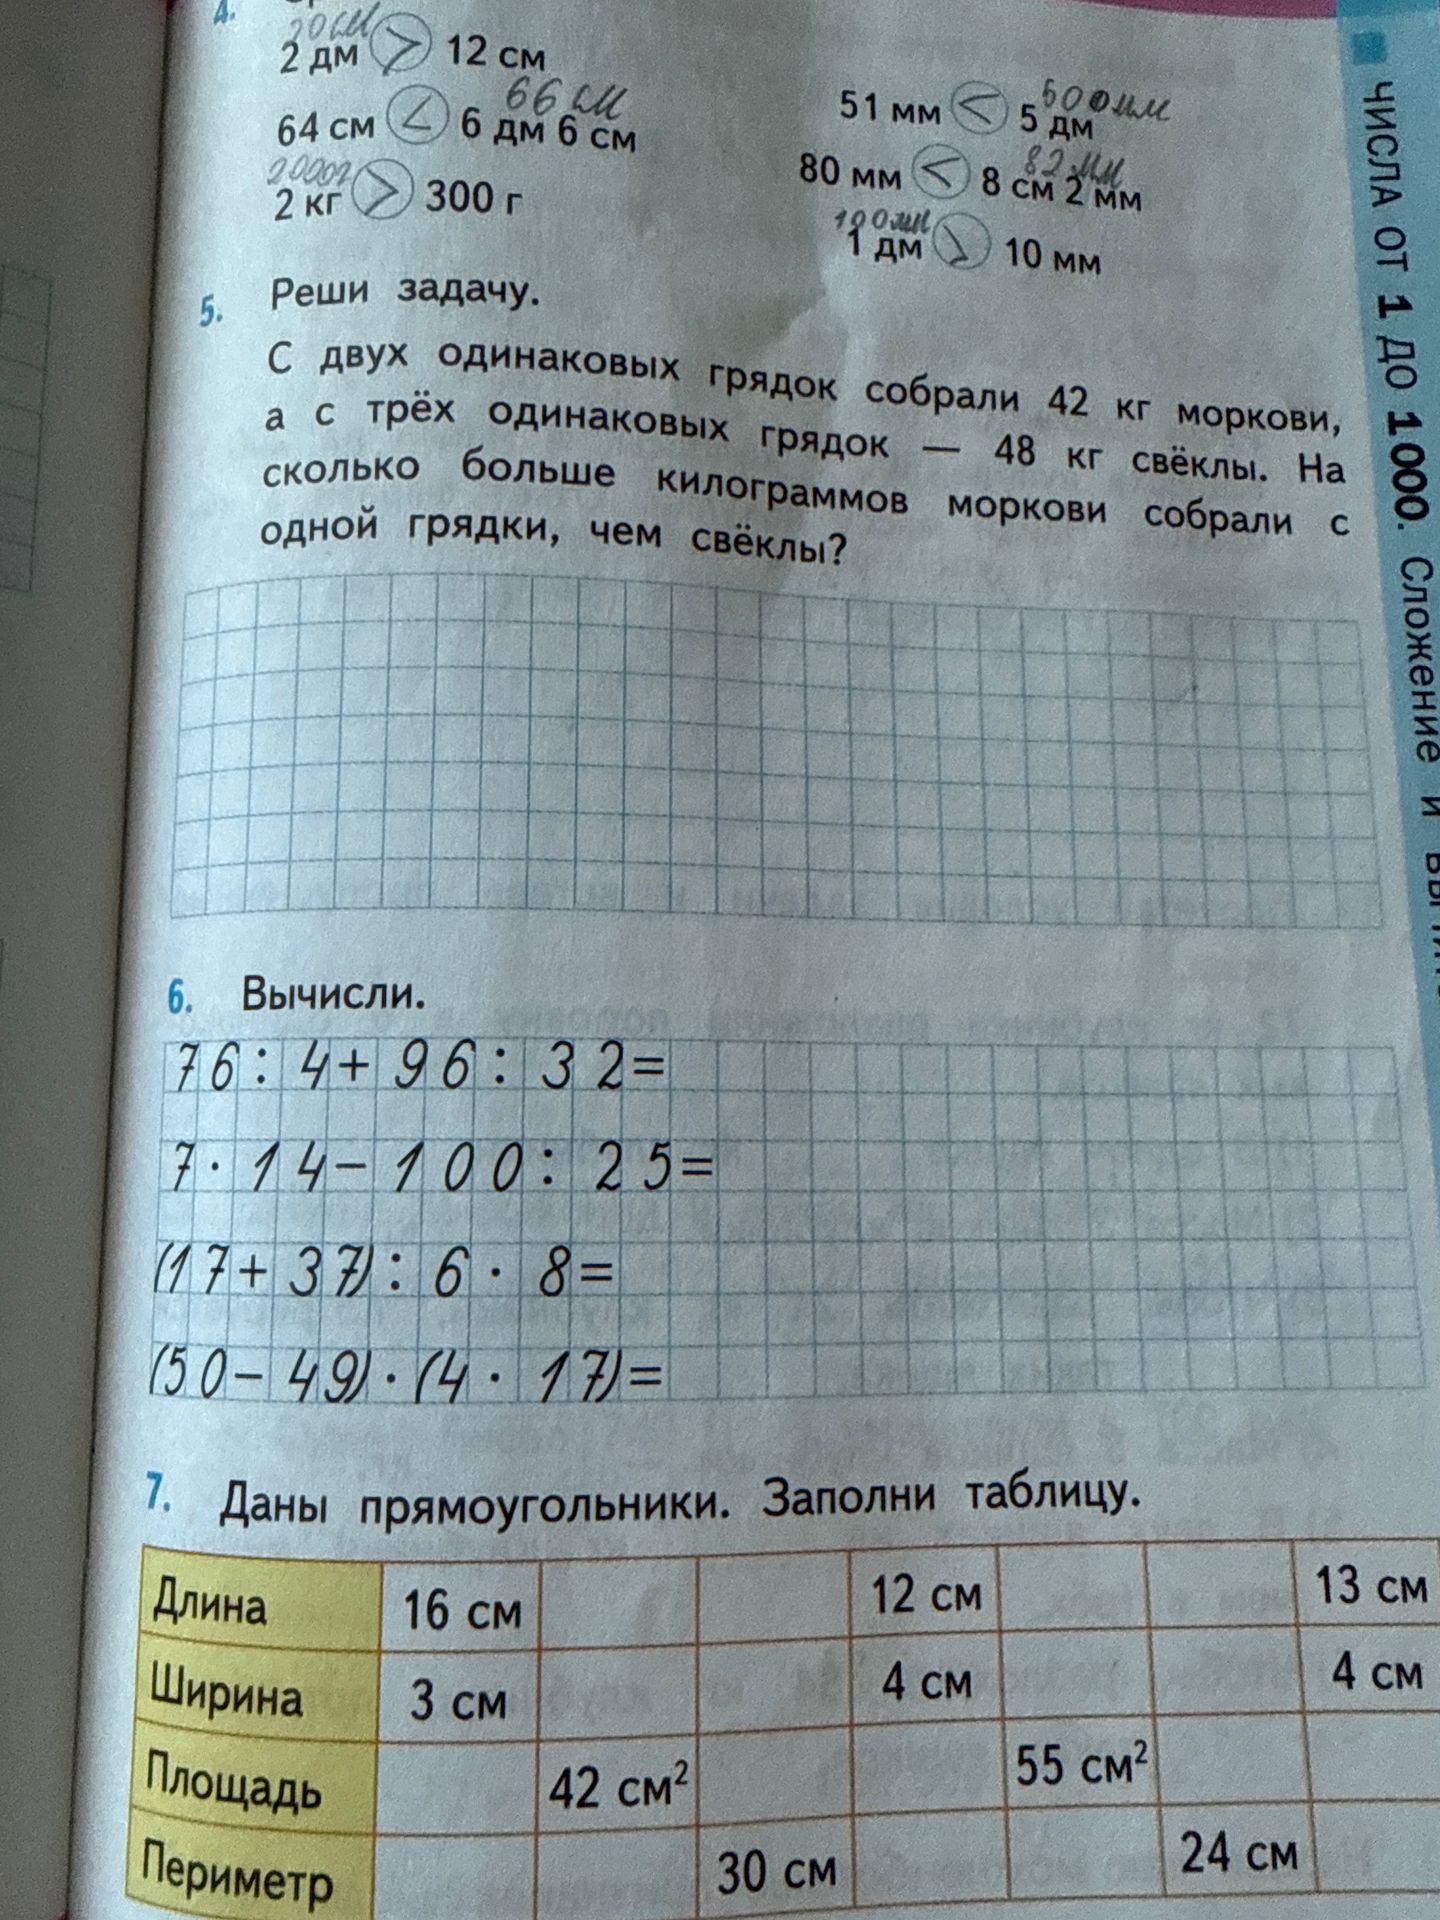 4.
20см
2 дм > 12 см
66 см
64 см < 6 дм 6 см
2000г
2 кг > 300 г
500мм
51 мм < 5 дм
82 мм
80 мм < 8 см 2 мм
100мм
1 дм > 10 мм
5. Реши задачу.
С двух одинаковых грядок собрали 42 кг моркови,
а с трёх одинаковых грядок — 48 кг свёклы. На
сколько больше килограммов моркови собрали с
одной грядки, чем свёклы?
6. Вычисли.
76 : 4 + 96 : 32 =
7 · 14 – 100 : 25 =
(17 + 37) : 6 · 8 =
(50 – 49) · (4 · 17) =
7. Даны прямоугольники. Заполни таблицу.
Длина 16 см 12 см 13 см
Ширина 3 см 4 см 4 см
Площадь 42 см² 55 см²
Периметр 30 см 24 см
ЧИСЛА ОТ 1 ДО 1000. Сложение и